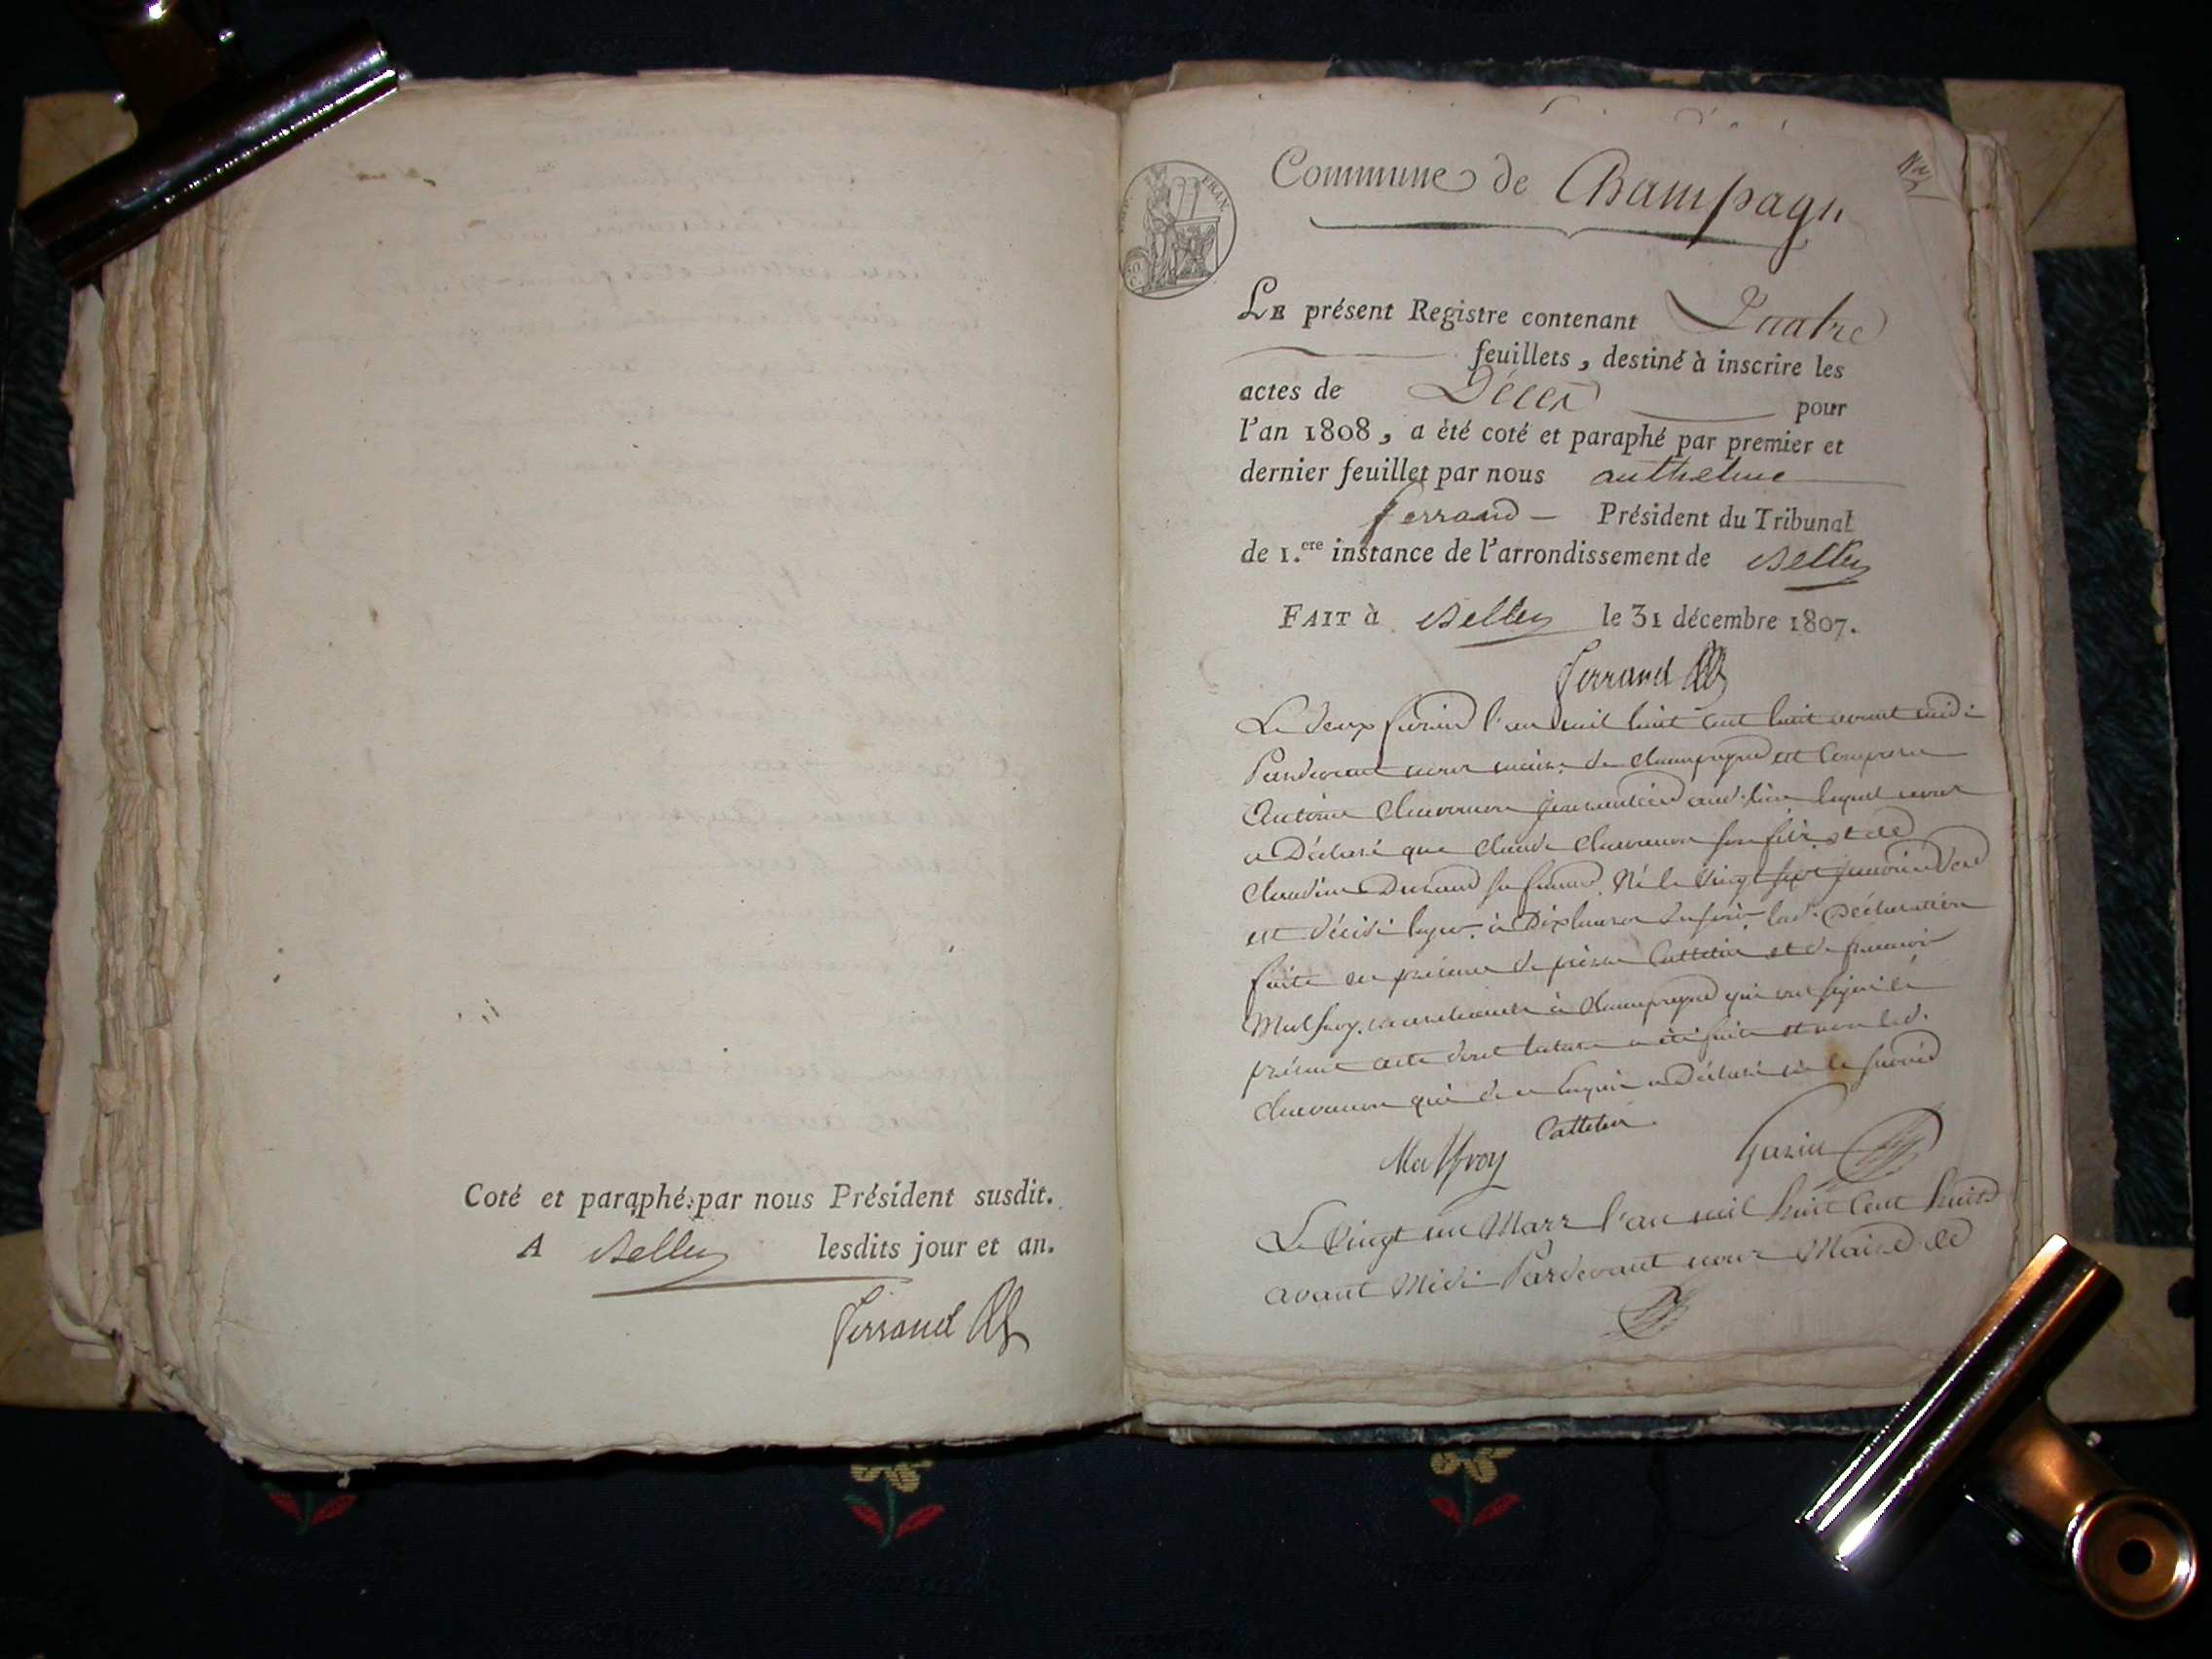 Coté et paraphé par nous Président susdit.
A Belley lesdits jour et an.
Ferrand
FRAN.
50
C.
Commune de Champagne
LE présent Registre contenant Quatre
feuillets, destiné à inscrire les
actes de Décès pour
l'an 1808, a été coté et paraphé par premier et
dernier feuillet par nous anthelme
ferrand Président du Tribunal
de 1.ere instance de l'arrondissement de Belley
FAIT à Belley le 31 décembre 1807.
Ferrand
Le deux fevrier l'an mil huit cent huit avant midi
Pardevant nous maire de Champagne est Comparu
Antoine audit lieu lequel nous
a Déclaré que Claude son fils et de
Claudine Durand sa femme. Né le vingt sept janvier
est décédé hyer à Dix heures du soir lad. Déclaration
faite en présence de pierre Cattelin et de francois
Malfroy à Champagne qui ont signé le
présent acte dont lecture a été faite et non led.
qui de ce a Déclaré ne le
Cattelin
Malfroy Garin
Le Vingt un Mars l'an mil huit Cent huit
avant Midi Pardevant nous Maire de